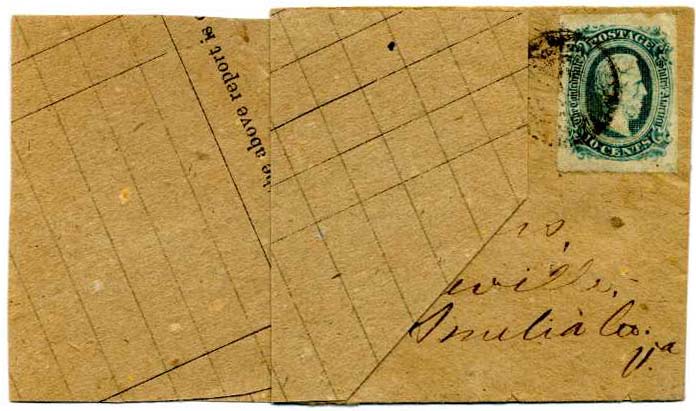 he above report is
POSTAGE
The Confederate
States America
10 CENTS
s,
ville,
Amelia Co.
Va